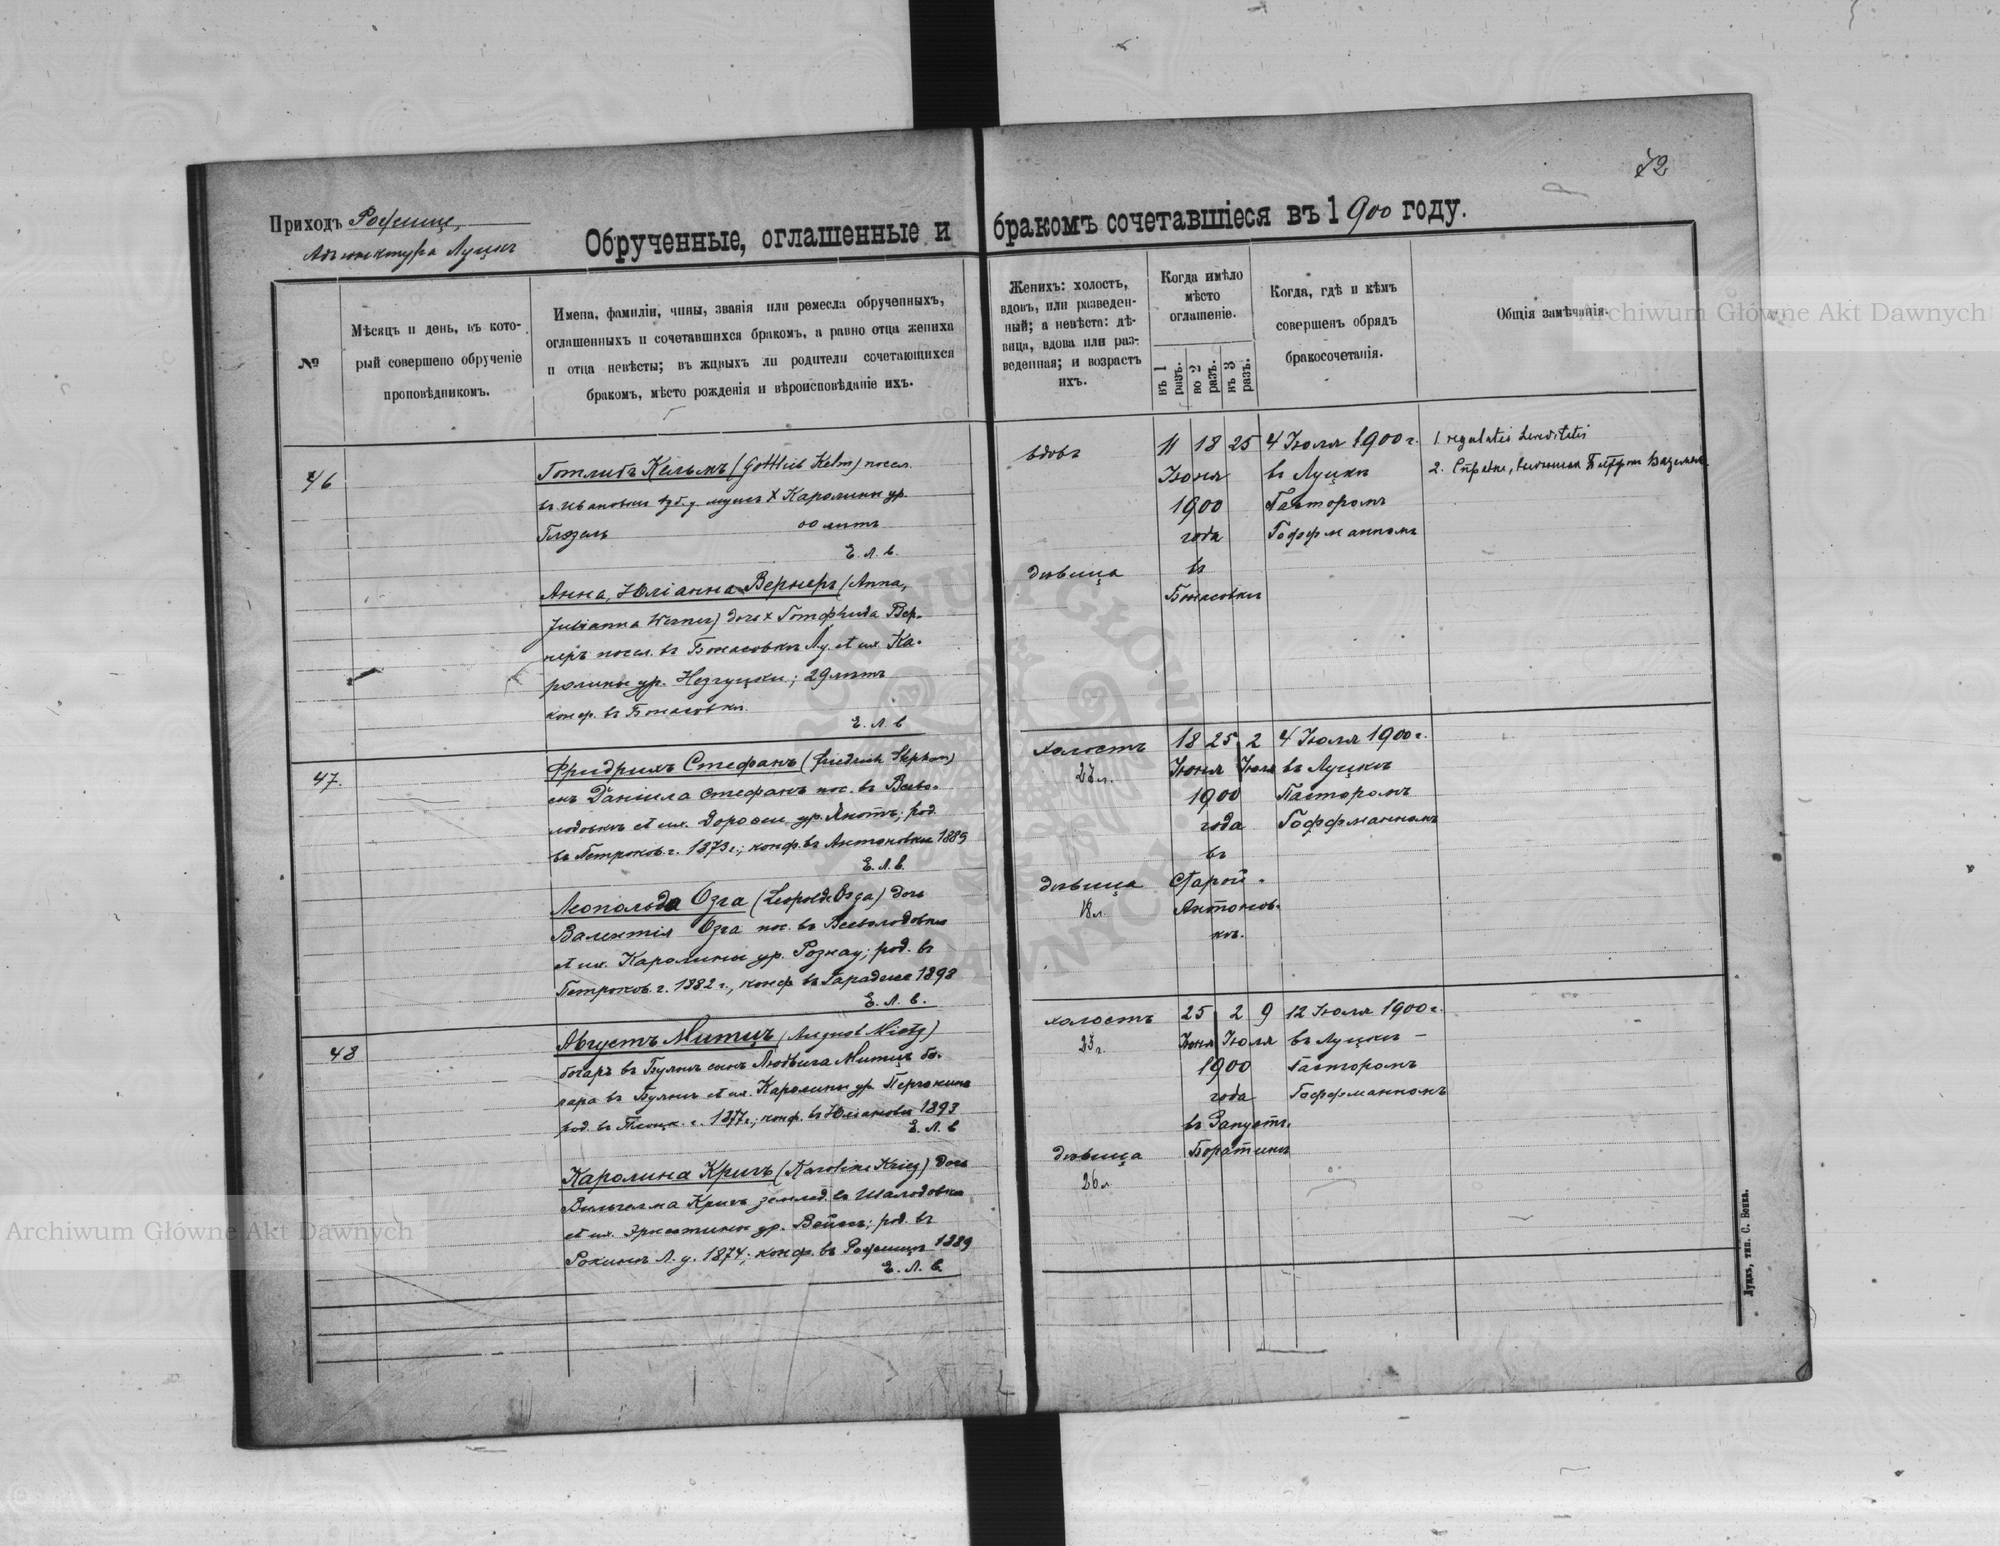 72
Приходъ Рожище,
Адъюнктура Луцкъ
Обрученные, оглашенные и бракомъ сочетавшіеся въ 1900 году.
№
Мѣсяцъ и день, въ кото-
рый совершено обрученіе
проповѣдникомъ.
Имена, фамиліи, чины, званія или ремесла обрученныхъ,
оглашенныхъ и сочетавшихся бракомъ, а равно отца жениха
и отца невѣсты; въ живыхъ ли родители сочетающихся
бракомъ, мѣсто рожденія и вѣроисповѣданіе ихъ.
Женихъ: холостъ,
вдовъ, или разведен-
ный; а невѣста: дѣ-
вица, вдова или раз-
веденная; и возрастъ
ихъ.
Когда имѣло
мѣсто
оглашеніе.
въ 1 разъ.
во 2 разъ.
въ 3 разъ.
Когда, гдѣ и кѣмъ
совершенъ обрядъ
бракосочетанія.
Общія замѣчанія.
46
Готлибъ Кельмъ (Gottlieb Kelm) посел.
въ Ивановкѣ мужъ † Каролины ур.
лѣтъ
Е. Л. в.
Анна, Юліанна Вернеръ (Anna,
Julianna Werner) дочь † Готфрида Вер-
неръ посел. въ Боасовкѣ Лу. и Ка-
ролины ур. ; 29 лѣтъ
конф. въ
Е. Л. в
вдовъ
дѣвица
11 18 25
Іюня
1900
года
въ
4 Іюля 1900 г.
въ Луцкѣ
Пасторомъ
Гоффманномъ
1.
2.
47.
Фридрихъ Стефанъ (Friedrich Stephan)
сынъ Даніила Стефанъ пос. въ Всево-
лодовкѣ Доротеи ур. ; род.
въ Петроков. г. 1873 г.; конф. въ Антоновкѣ 1889
Е. Л. в.
Леопольда Озга (Leopolde Osga) дочь
Валентія Озга пос. въ Всеволодовкѣ
Каролины ур. Рознау; род. въ
Петроков. г. 1882 г., конф. въ 1898
Е. Л. в.
холостъ
27 л.
дѣвица
18 л.
18 25 2
Іюня Іюля
1900
года
въ
Старой
Антонов-
кѣ.
4 Іюля 1900 г.
въ Луцкѣ
Пасторомъ
Гоффманномъ
48
Августъ Митцъ (August Mietz)
въ сынъ Людвига Митцъ
въ Каролины ур.
род. въ Плоцк. г. 1877 г.; конф. въ Юліановкѣ 1893
Е. Л. в
Каролина Кригъ (Karoline Krieg) дочь
Вильгельма Кригъ землед. въ Шалодовкѣ
Эрнестины ур. Вейсъ; род. въ
Рокинѣ Л. у. 1874; конф. въ Рожищѣ 1889
Е. Л. в.
холостъ
23 г.
дѣвица
26 л.
25 2 9
Іюня Іюля
1900
года
въ Запуст.
Боратинѣ
12 Іюля 1900 г.
въ Луцкѣ
Пасторомъ
Гоффманномъ
Луцкъ, тип. С. Бонка.
Archiwum Główne Akt Dawnych
Archiwum Główne Akt Dawnych